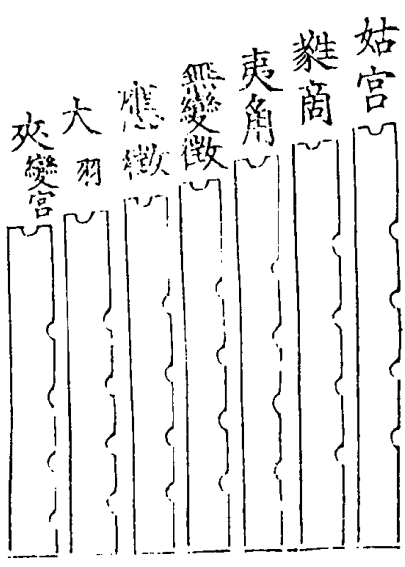 姑宫
蕤商
夷角
無變徵
應徵
大羽
夾變宫